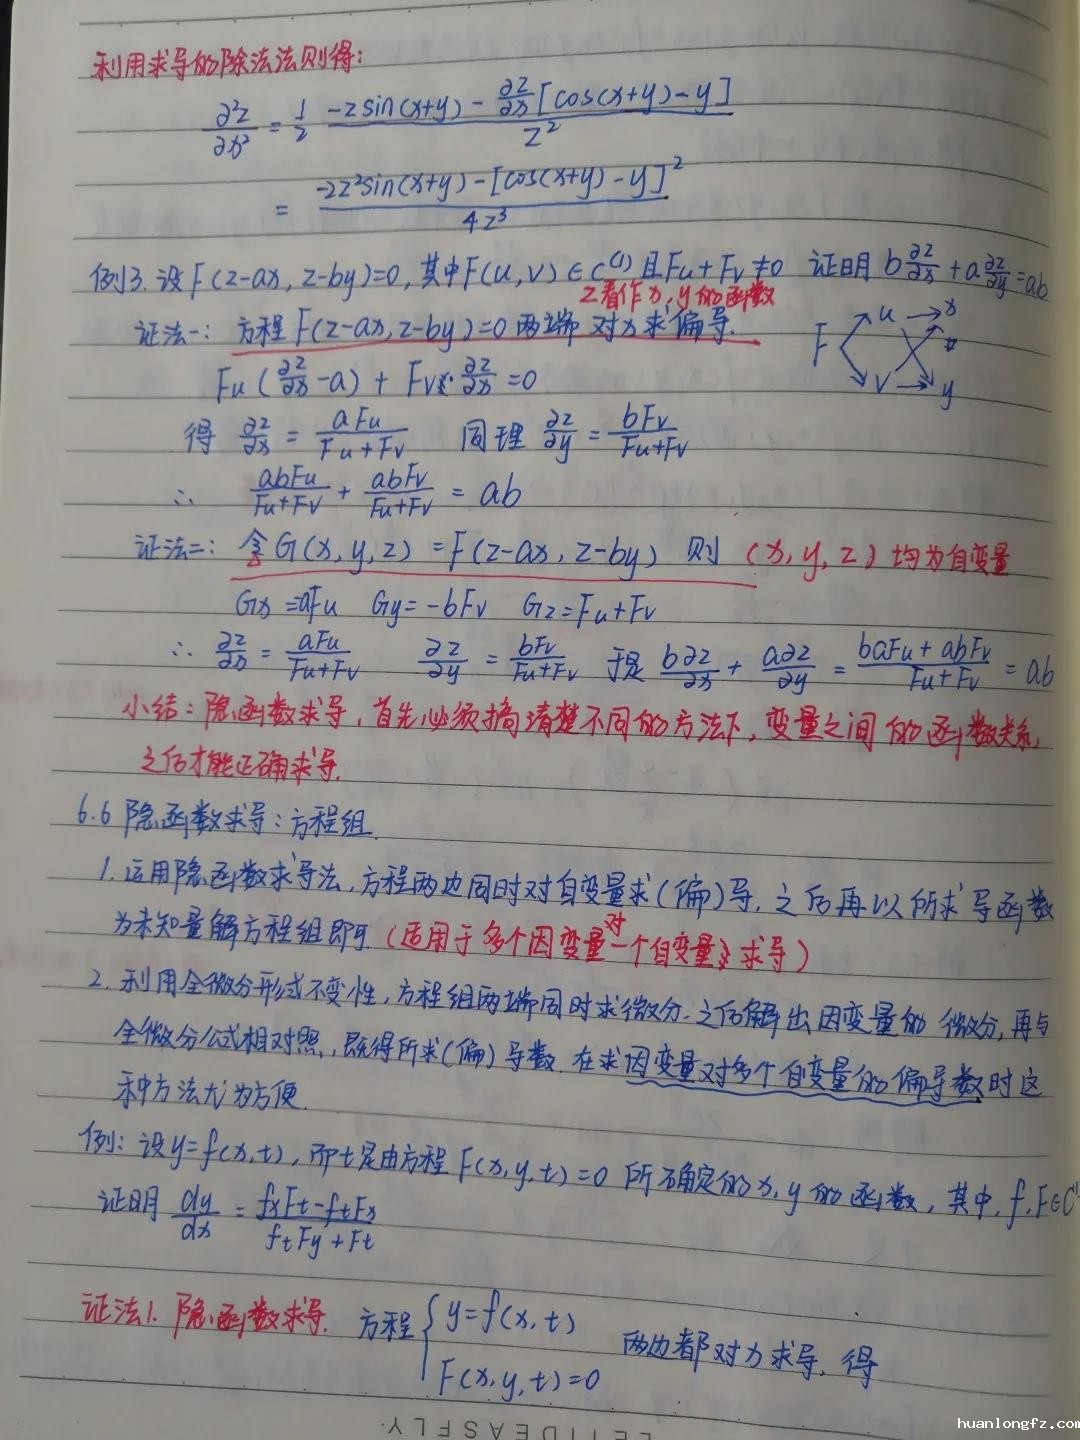 利用求导的除法法则得:
∂²z/∂x² = 1/2 · (-zsin(x+y) - ∂z/∂x[cos(x+y)-y])/z²
= (-2z²sin(x+y)-[cos(x+y)-y]²)/4z³
例3. 设F(z-ax, z-by)=0, 其中F(u,v)∈C⁽¹⁾且Fu+Fv≠0 证明 b∂z/∂x + a∂z/∂y = ab
z看作x,y的函数
证法一: 方程F(z-ax, z-by)=0两端对x求偏导.
F u v x y
Fu(∂z/∂x - a) + Fv·∂z/∂x = 0
得 ∂z/∂x = aFu/(Fu+Fv) 同理 ∂z/∂y = bFv/(Fu+Fv)
∴ abFu/(Fu+Fv) + abFv/(Fu+Fv) = ab
证法二: 令G(x,y,z)=F(z-ax, z-by) 则 (x,y,z)均为自变量
Gx=aFu Gy=-bFv Gz=Fu+Fv
∴ ∂z/∂x = aFu/(Fu+Fv) ∂z/∂y = bFv/(Fu+Fv) 于是 b∂z/∂x + a∂z/∂y = (baFu+abFv)/(Fu+Fv) = ab
小结: 隐函数求导, 首先必须搞清楚不同的方法下, 变量之间的函数关系,
之后才能正确求导.
6.6 隐函数求导: 方程组.
1. 运用隐函数求导法, 方程两边同时对自变量求(偏)导, 之后再以所求导函数
为未知量解方程组即可 (适用于多个因变量对一个自变量求导)
2. 利用全微分形式不变性, 方程组两端同时求微分. 之后解出因变量的微分, 再与
全微分公式相对照, 既得所求(偏)导数. 在求因变量对多个自变量的偏导数时这
种方法尤为方便.
例: 设y=f(x,t), 而t是由方程F(x,y,t)=0所确定的x,y的函数, 其中, f,F∈C⁽¹
证明 dy/dx = (fxFt-ftFx)/(ftFy+Ft)
证法1. 隐函数求导. 方程{y=f(x,t) 两边都对x求导, 得
F(x,y,t)=0
LETIDEASFLY
huanlongfz.com